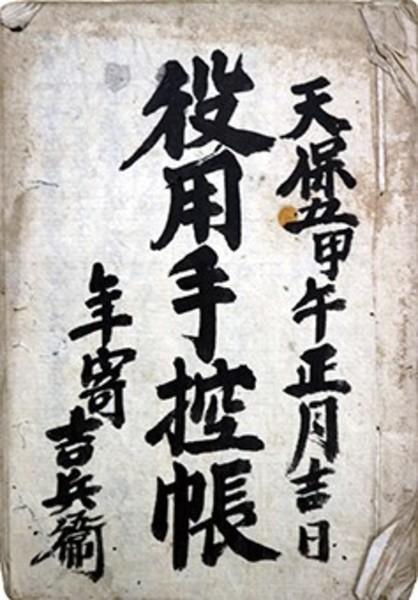 天保五甲午正月吉日
役用手控帳
年寄吉兵衛